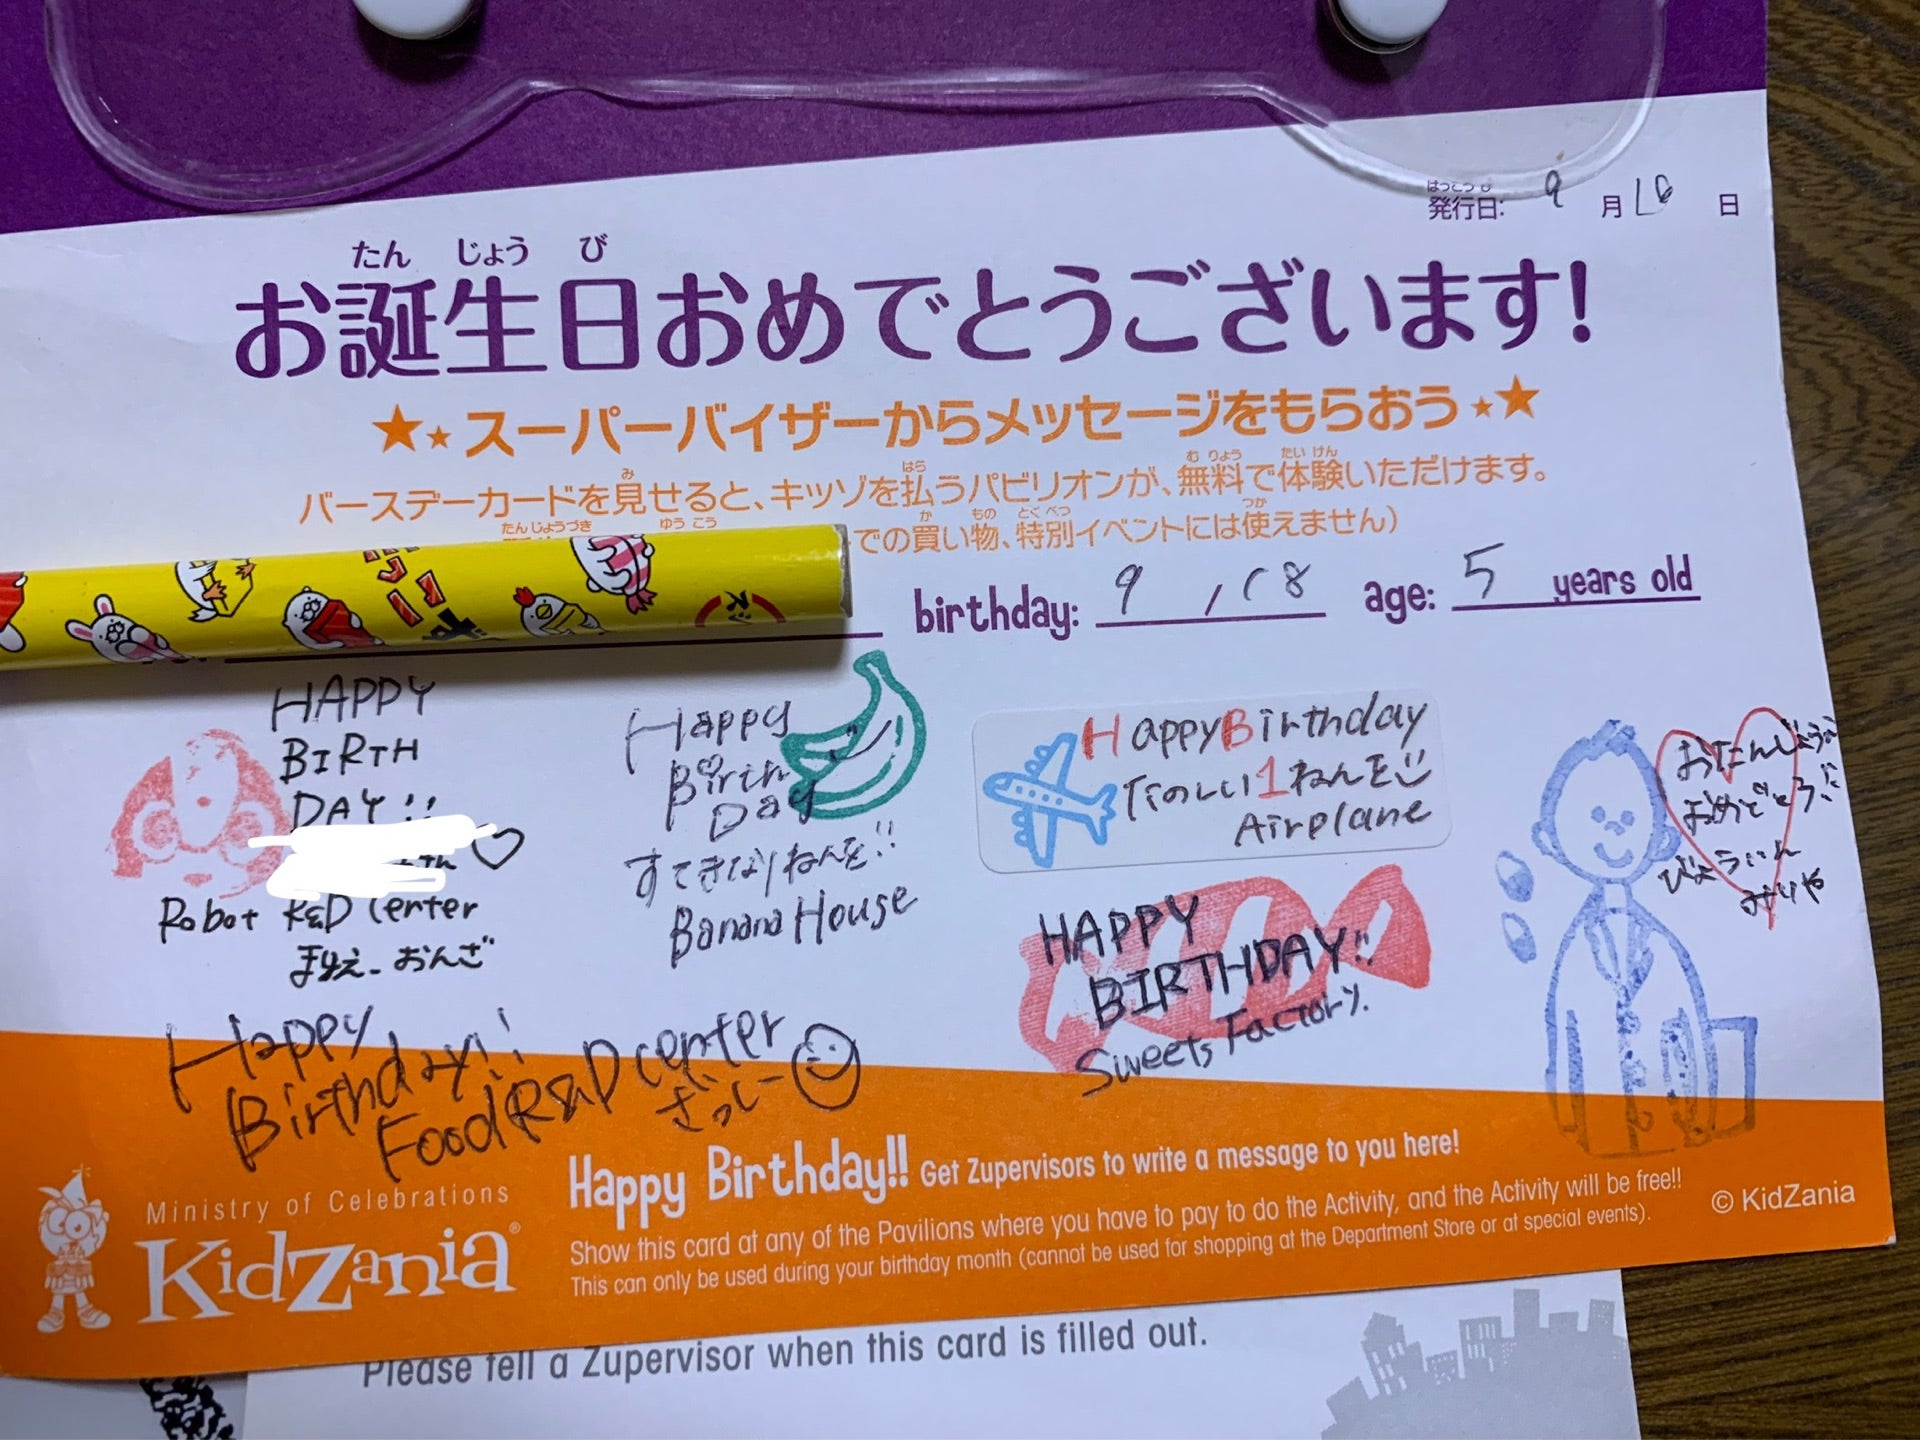 はっこうび
発行日: 9月18日
たんじょうび
お誕生日おめでとうございます!
★★スーパーバイザーからメッセージをもらおう★★
み はら むりょう たいけん
バースデーカードを見せると、キッゾを払うパビリオンが、無料で体験いただけます。
たんじょうづき ゆうこう か もの とくべつ つか
での買い物、特別イベントには使えません)
birthday: 9, 18 age: 5 years old
HAPPY
BIRTH
DAY!!
Robot R&D Center
まりえ おんざ
Happy
Birth
Day
すてきな1ねんを!!
Banana House
Happy Birthday
たのしい1ねんを
Airplane
HAPPY
BIRTHDAY!!
Sweets Factory.
おたんじょうび
おめでとう!!
びょういん
みりや
Happy
Birthday!!
Food R&D center
ざっしー
Ministry of Celebrations
KidZania®
Happy Birthday!! Get Zupervisors to write a message to you here!
Show this card at any of the Pavilions where you have to pay to do the Activity, and the Activity will be free!!
This can only be used during your birthday month (cannot be used for shopping at the Department Store or at special events).
© KidZania
Please tell a Zupervisor when this card is filled out.